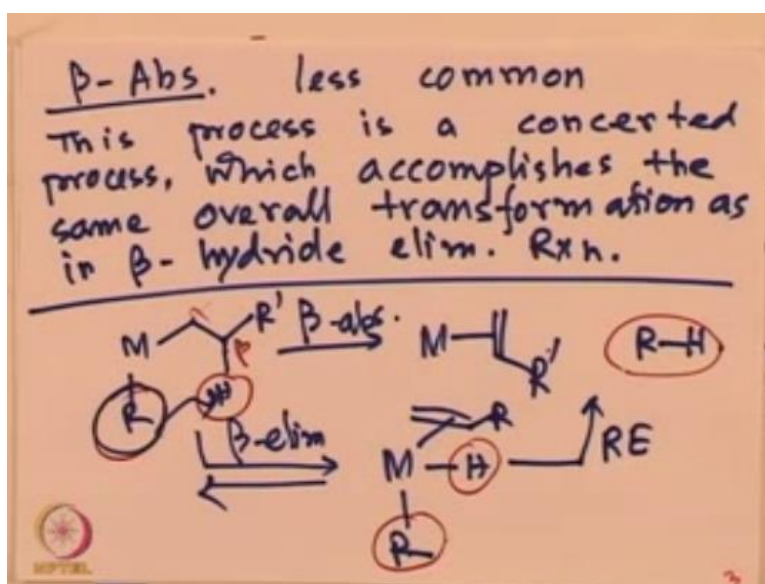 β-Abs. less common
This process is a concerted
process, which accomplishes the
same overall transformation as
in β-hydride elim. Rxn.
α R' β-abs.
M β M R' R-H
R H
β-elim R
M-H RE
R
NPTEL
3